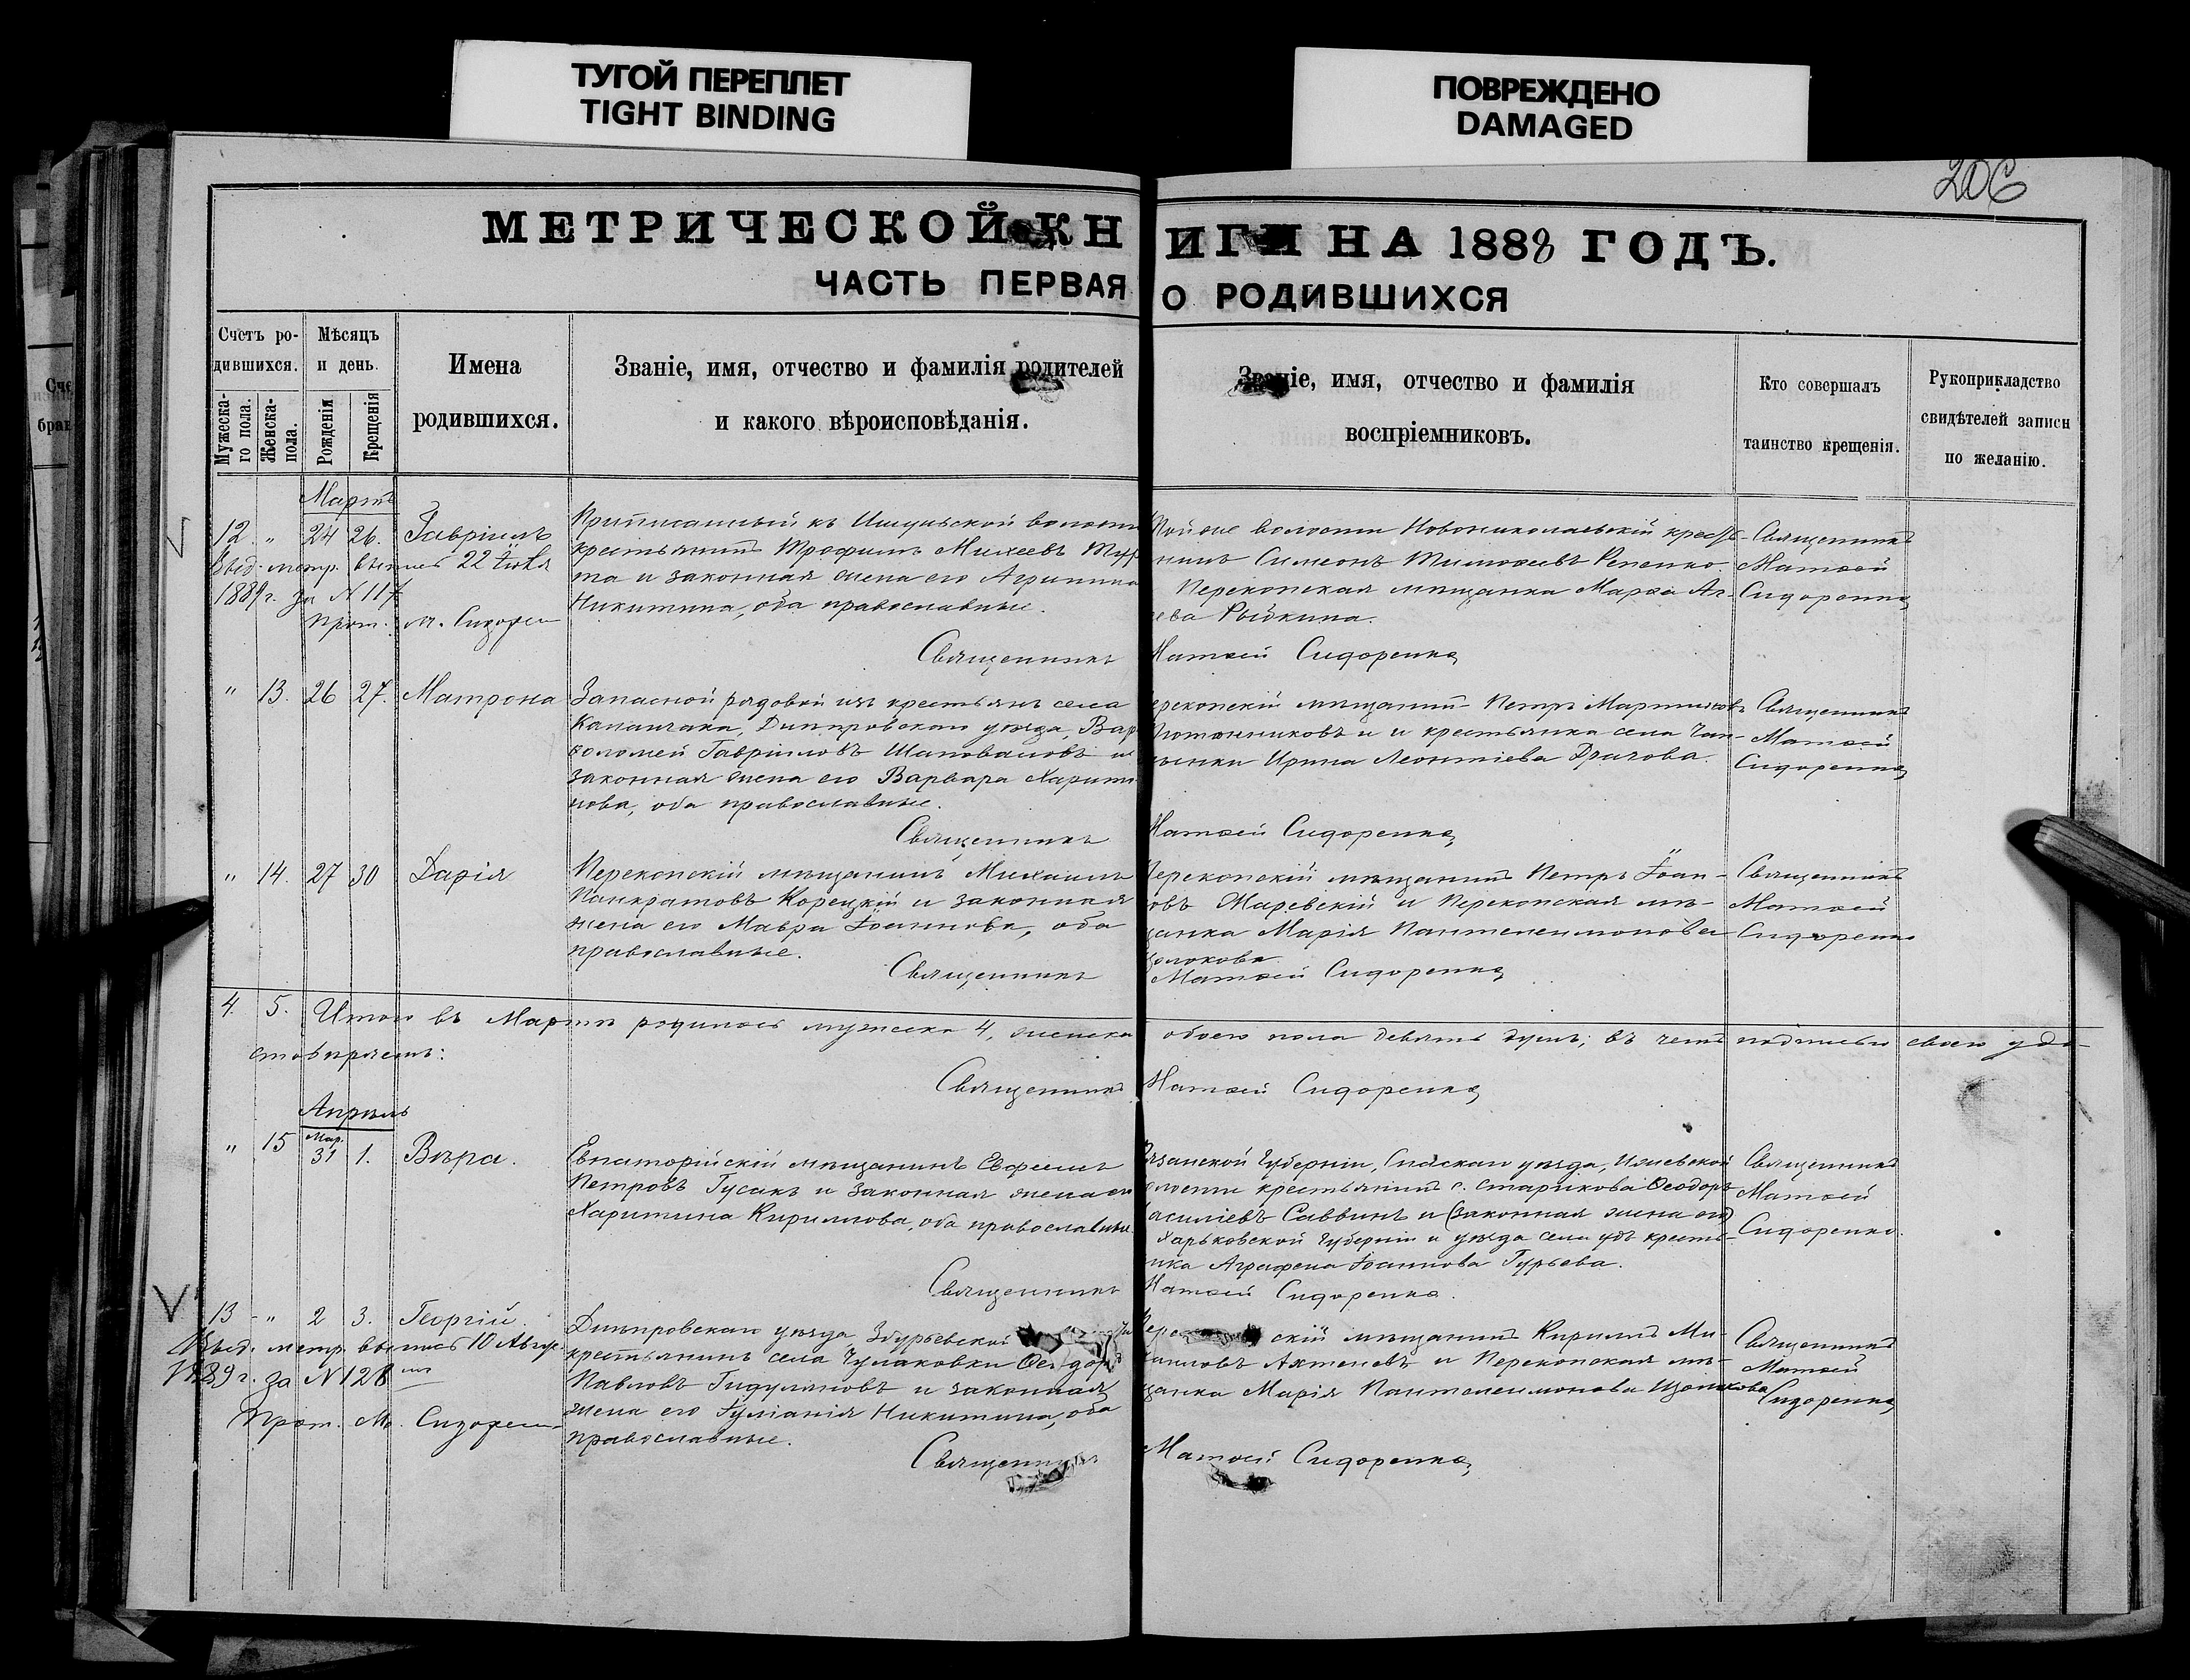 ТУГОЙ ПЕРЕПЛЕТ
TIGHT BINDING
ПОВРЕЖДЕНО
DAMAGED
206
МЕТРИЧЕСКОЙ КНИГИ НА 1888 ГОДЪ.
ЧАСТЬ ПЕРВАЯ О РОДИВШИХСЯ
Счетъ ро-
дившихся.
Мужеска-
го пола.
Женска-
пола.
Мѣсяцъ
и день.
Рожденія
Крещенія
Имена
родившихся.
Званіе, имя, отчество и фамилія родителей
и какого вѣроисповѣданія.
Званіе, имя, отчество и фамилія
воспріемниковъ.
Кто совершалъ
таинство крещенія.
Рукоприкладство
свидѣтелей записи
по желанію.
Мартъ
12. " 24 26. Гавріилъ
Выд. метр. выпись 22 Іюля
1889 г. за N 117
Прот. М. Сидорен
Приписанный къ Ишуньской волости
крестьянинъ Трофимъ Михеевъ
та и законная жена его Агрипина
Никитина, оба православные.
Той же волости Новониколаевскій кресть-
нинъ Симеонъ Тимофеевъ Репенко.
Перекопская мѣщанка Марѳа Ал-
ева Рыбкина.
Священникъ
Матѳей
Сидоренко
Священникъ Матѳей Сидоренко
" 13. 26 27. Матрона
Запасной рядовой изъ крестьянъ села
Каланчака, Днѣпровскаго уѣзда, Вар
ѳоломей Гавріиловъ Шаповаловъ и
законная жена его Варвара Харито
нова, оба православные.
ерекопскій мѣщанинъ Петръ Мартиновъ
Плотянниковъ и и крестьянка села Чап-
лынки Ирина Леонтіева Драчова.
Священникъ
Матѳей
Сидоренко
Священникъ Матѳей Сидоренко
" 14. 27 30 Дарія
Перекопскій мѣщанинъ Михаилъ
Панкратовъ Корецкій и законная
жена его Мавра Іоаннова, оба
православные.
Перекопскій мѣщанинъ Петръ Іоан-
овъ Маревскій и Перекопская мѣ-
щанка Марія Пантелеимонова
Щолокова
Священникъ
Матѳей
Сидоренко
Священникъ Матѳей Сидоренко
4. 5. Итого въ Мартѣ родилось мужеска 4, женска обоего пола девять душъ; въ чемъ подписью своею удо-
стовѣряемъ:
Священникъ Матѳей Сидоренко
Апрѣль
" 15 Мар. 31 1. Вѣра.
Евпаторійскій мѣщанинъ Евфимъ
Петровъ Гусакъ и законная жена его
Харитина Кирилова, оба православные
язанской Губерніи, Спаскаго уѣзда, Ижевской
олости крестьянинъ с. Старикова Ѳеодоръ
асиліевъ Саввинъ и (законная жена его)
Харьковской Губерніи и уѣзда села кресть-
нка Аграфена Іоаннова Гурьева.
Священникъ
Матѳей
Сидоренко.
Священникъ Матѳей Сидоренко.
13 " 2 3. Георгій.
Выд. метр. выпись 10 Авгус
1889 г. за N 128
Прот. М. Сидорен
Днѣпровскаго уѣзда Збурьевской
крестьянинъ села Чулаковки Ѳеодоръ
Павловъ Гидуляновъ и законная
жена его Іуліанія Никитина, оба
православные.
скій мѣщанинъ Кирилъ Ми-
хаиловъ Ахтеневъ и Перекопская мѣ-
щанка Марія Пантелеимонова Щолокова
Священникъ
Матѳей
Сидоренко
Священникъ Матѳей Сидоренко